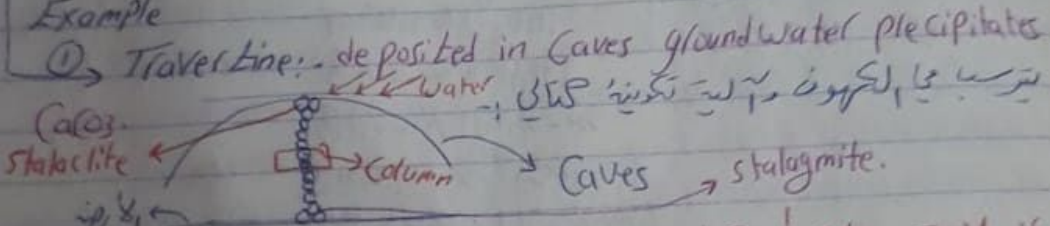 Example
① Travertine:. deposited in Caves groundwater precipitates
water
يترسب في الكهوف وآلية تكوينه كالتالي :-
CaCO3.
Stalactite
Column
Caves
stalagmite.